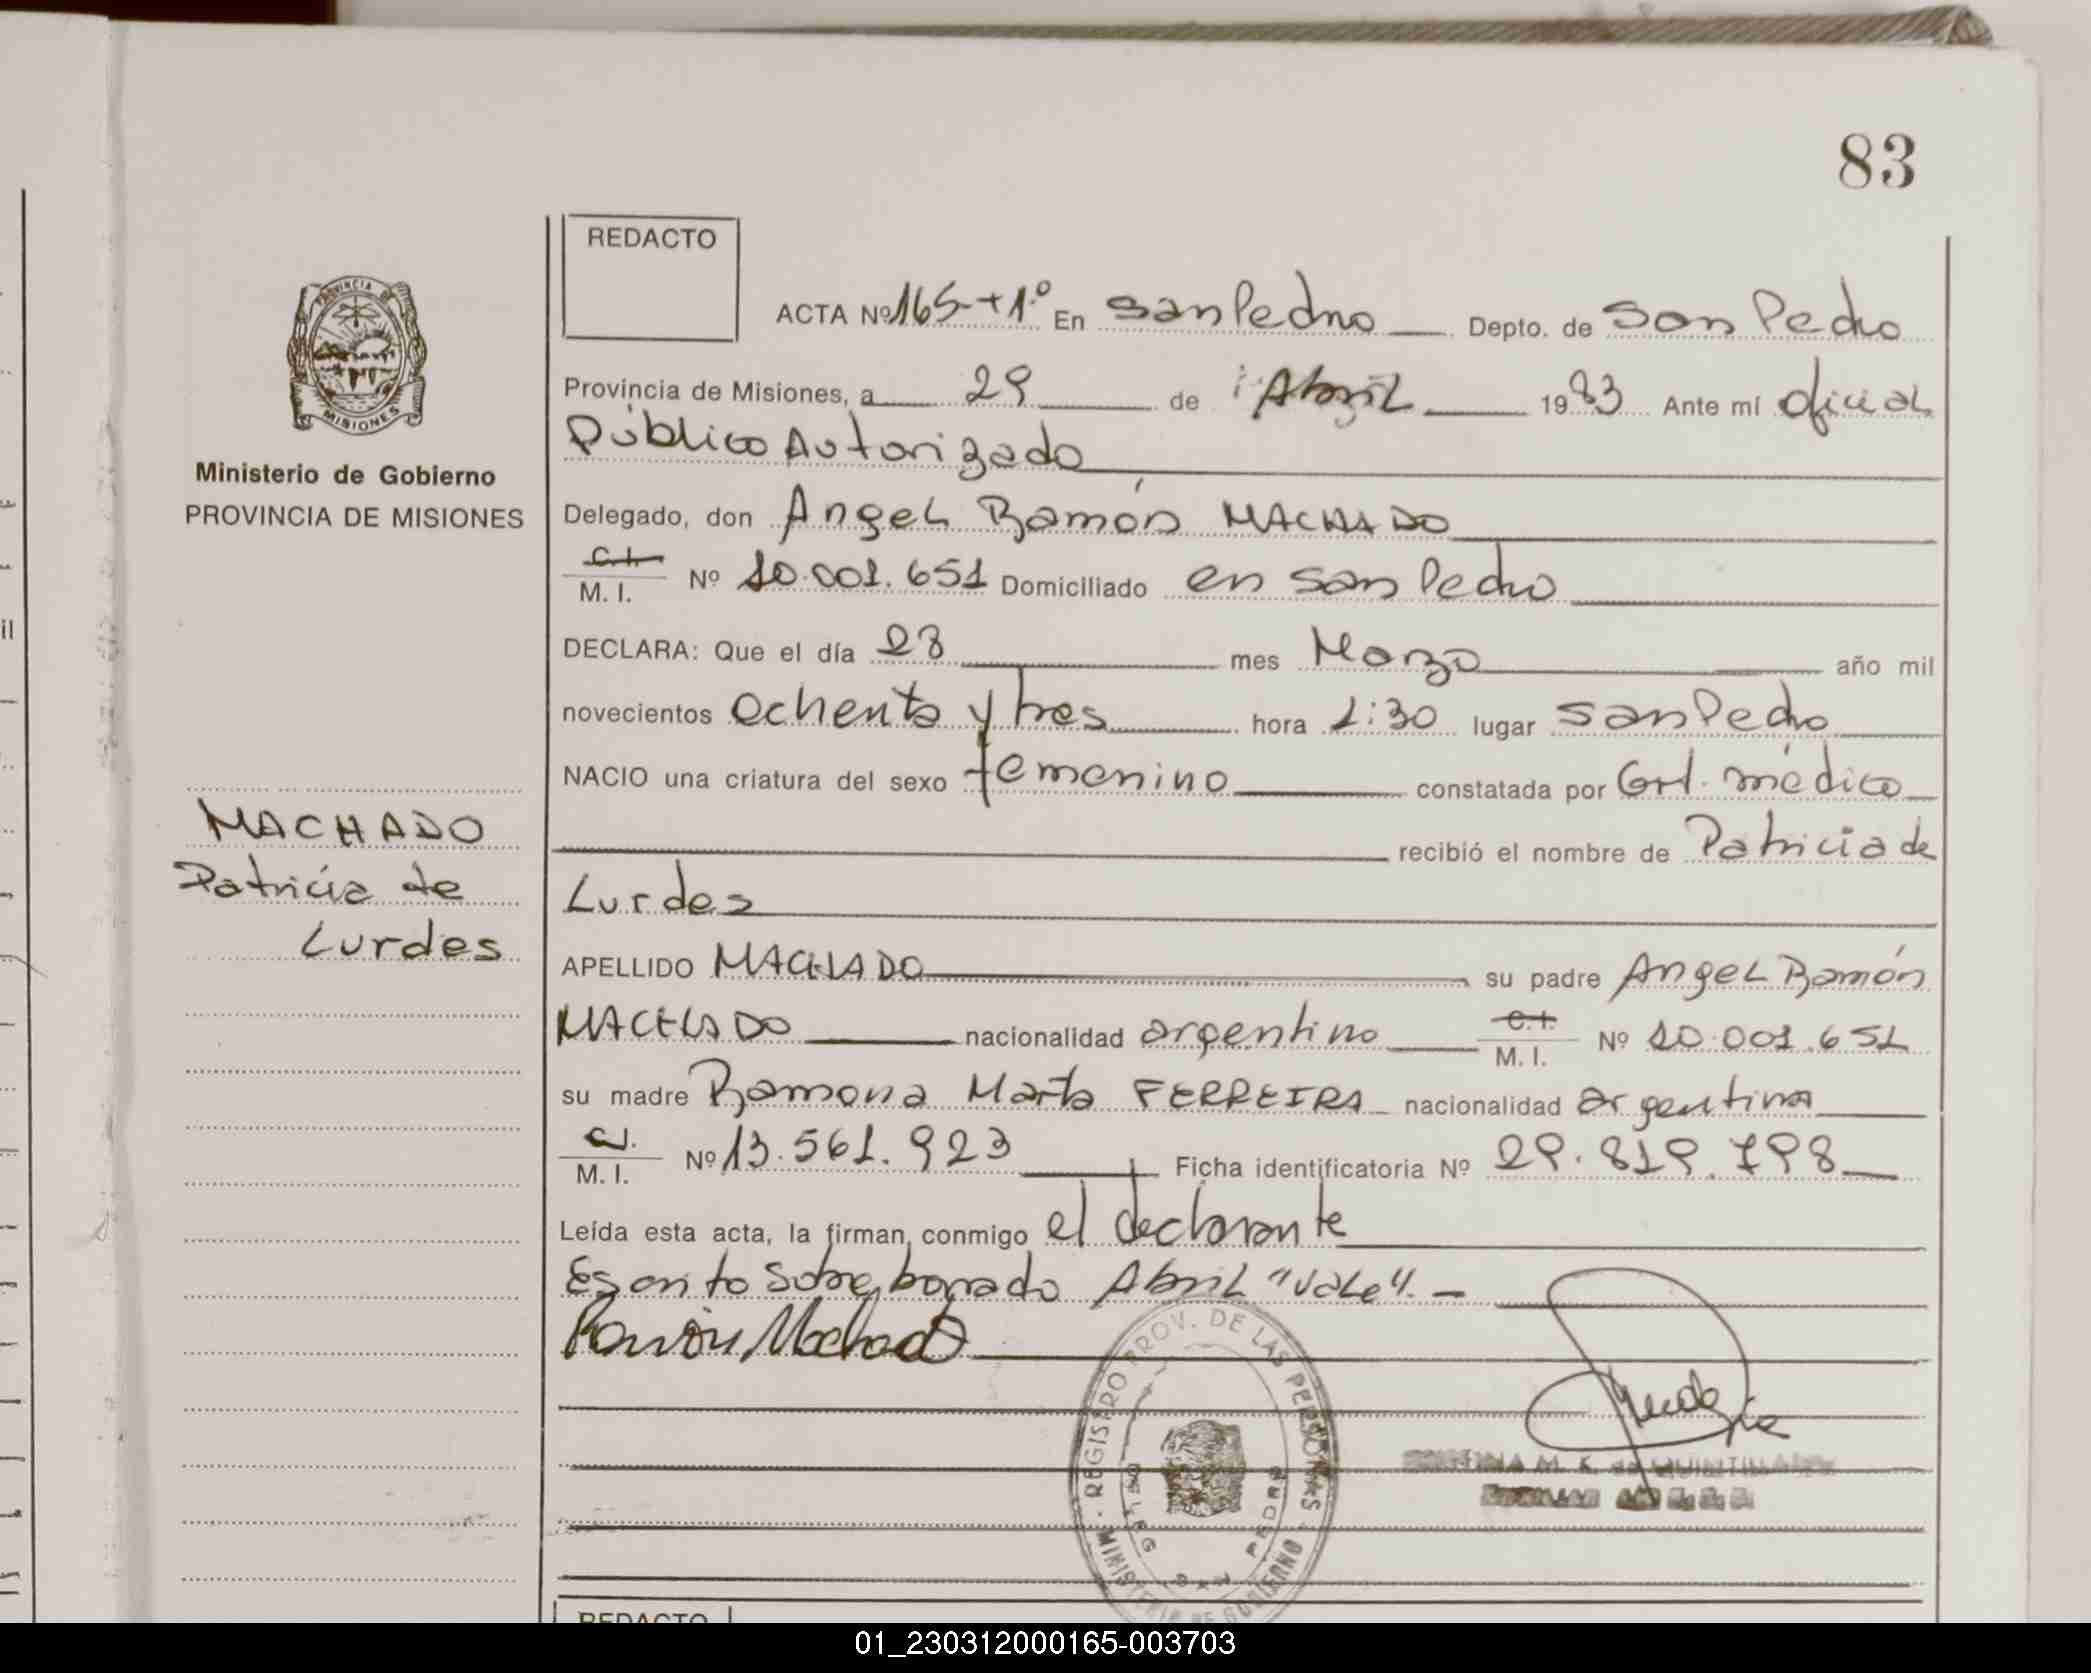 83
REDACTO
ACTA Nº 165-t1º En San Pedro Depto. de San Pedro
Provincia de Misiones, a 29 de Abril 1983 Ante mí oficial
Público Autorizado
Delegado, don Angel Ramón MACHADO
C.I. M. I. Nº 10.001.651 Domiciliado en San Pedro
DECLARA: Que el día 28 mes Marzo año mil
novecientos ochenta y tres hora 1:30 lugar San Pedro
NACIO una criatura del sexo femenino constatada por Crt. médico
recibió el nombre de Patricia de
Lurdes
APELLIDO MACHADO su padre Angel Ramón
MACHADO nacionalidad argentino C.I. M. I. Nº 10.001.651
su madre Ramona Marta FERREIRA nacionalidad argentina
C.I. M. I. Nº 13.561.923 Ficha identificatoria Nº 29.819.798
Leída esta acta, la firman conmigo el declarante
Escrito sobre borrado Abril "Vale". -
Ramón Machado
REGISTRO PROV. DE LAS PERSONAS
MINISTERIO DE GOBIERNO
PEDRO
M. K. de QUINTILLA
PROVINCIA DE
MISIONES
Ministerio de Gobierno
PROVINCIA DE MISIONES
MACHADO
Patricia de
Lurdes
il
REDACTO
01_230312000165-003703